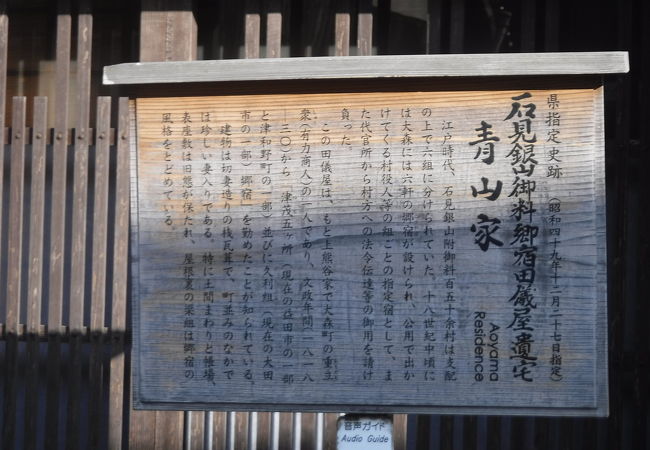 県指定史跡 (昭和四十九年十二月二十七日指定)
石見銀山御料郷宿田儀屋遺宅
青山家
Aoyama
Residence
江戸時代、石見銀山附御料百五十余村は支配
の上で六組に分けられていた。十八世紀中頃に
は大森には六軒の郷宿が設けられ、公用で出か
けてくる村役人等の組ごとの指定宿として、ま
た代官所から村方への法令伝達等の御用を請け
負った。
この田儀屋は、もと上熊谷家で大森町の重立
衆(有力商人)の一人であり、文政年間(一八一八
~三〇)から「津茂五ヶ所(現在の益田市の一部
と津和野町の一部)並びに久利組(現在の大田
市の一部)郷宿」を勤めたことが知られている。
建物は切妻造りの桟瓦葺で、町並みのなかで
は珍しい妻入りである。特に土間まわりと帳場、
表座敷は旧態が保たれ、屋根裏の梁組は郷宿の
風格をとどめている。
音声ガイド
Audio Guide